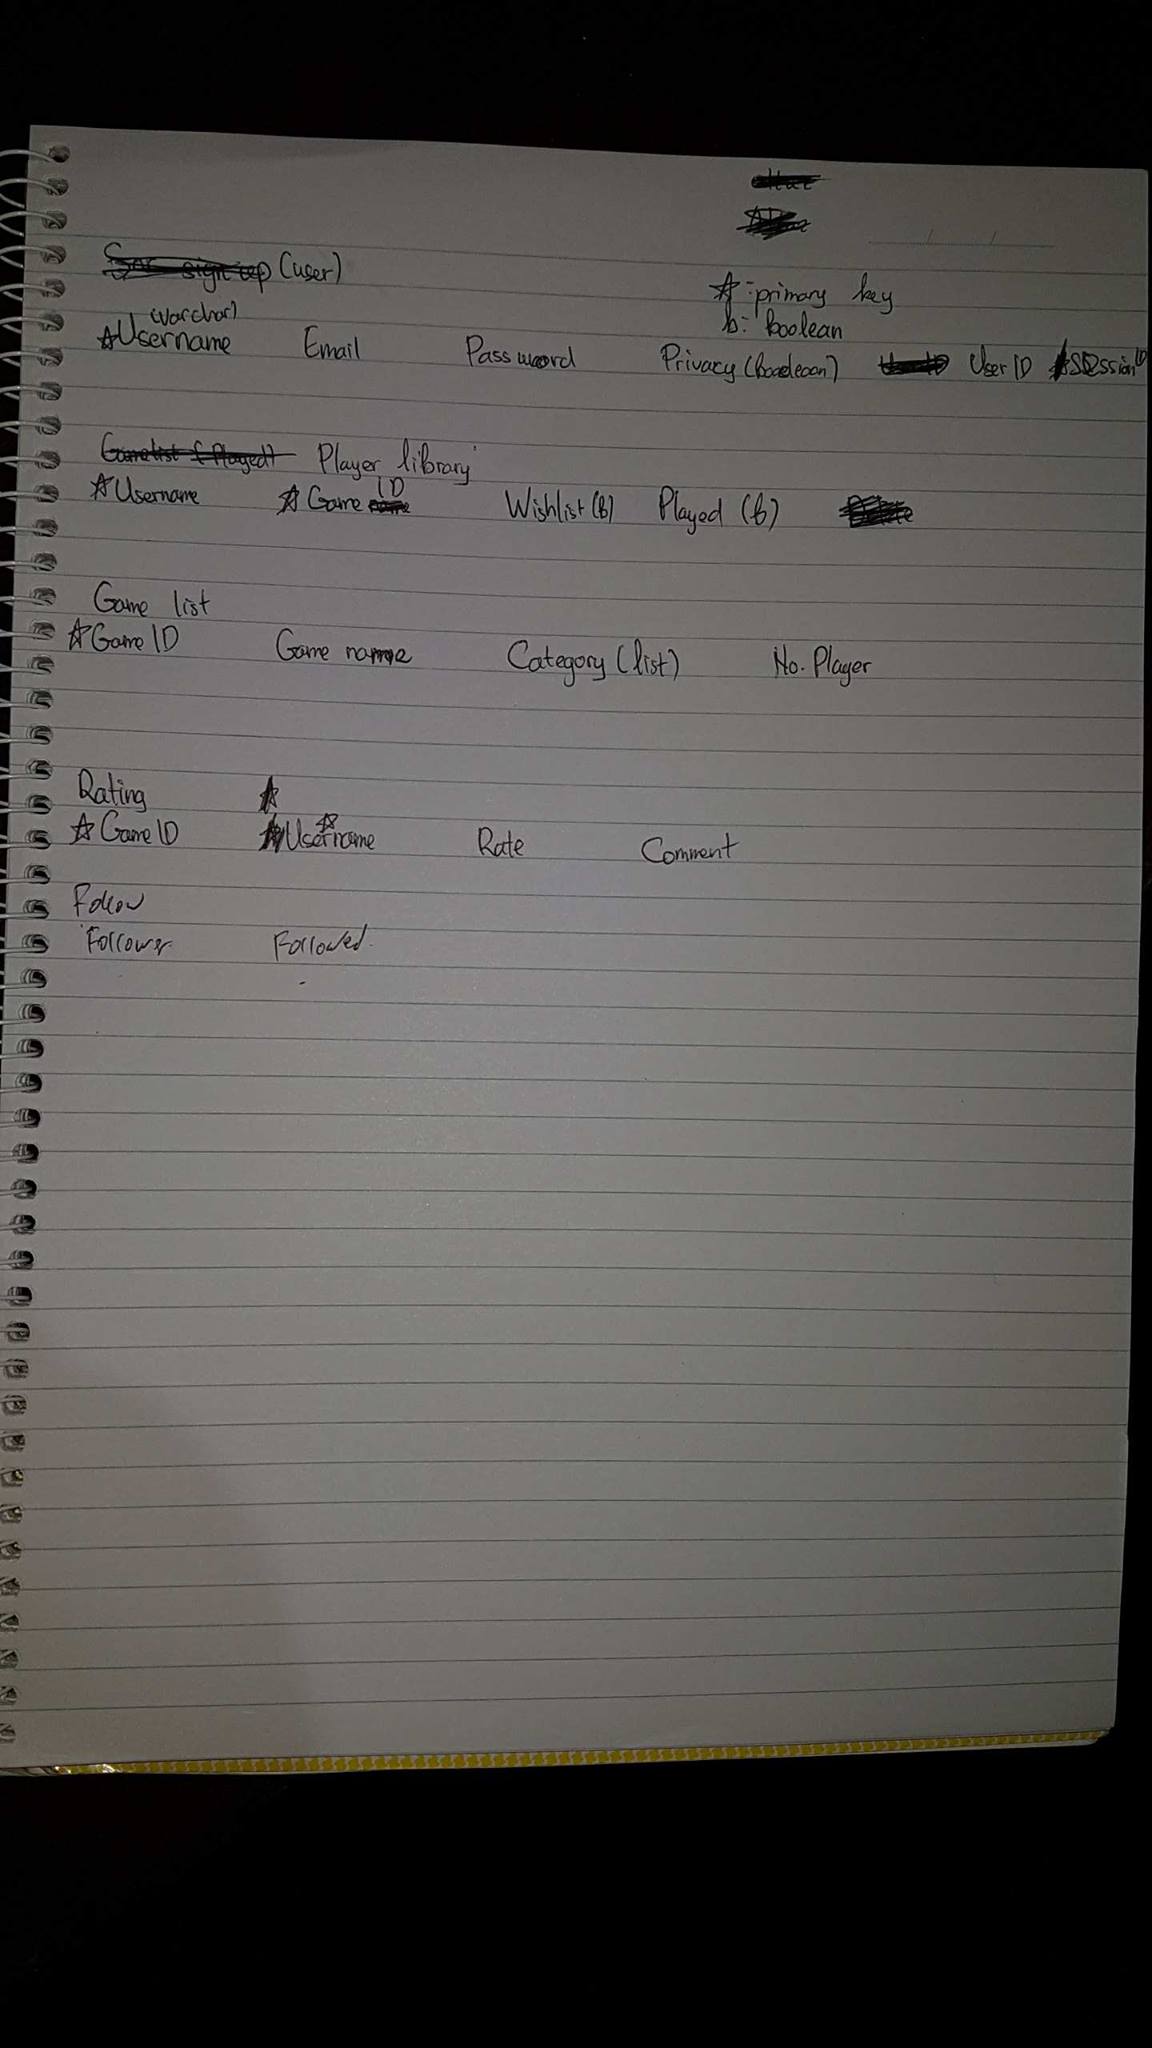 (user)
☆: primary key
b: boolean
(varchar)
☆Username Email Password Privacy (boolean) User ID Session ID
Player library
☆Username ☆Game ID Wishlist (b) Played (b)
Game list
☆Game ID Game name Category (list) No. Player
Rating
☆Game ID Username☆ Rate Comment
Follow
Follower Followed.